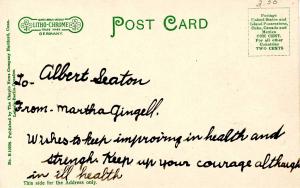 2 50
LITHO-CHROME
TRADE MARK
GERMANY.
POST CARD
Postage
United States and
Island Possessions,
Cuba, Canada and
Mexico
ONE CENT.
For all other
Countries
TWO CENTS.
To- Albert Seaton
From- Martha Gingell.
Wishes to keep improving in health and
strengh. Keep up your courage although
in ill health
This side for the Address only.